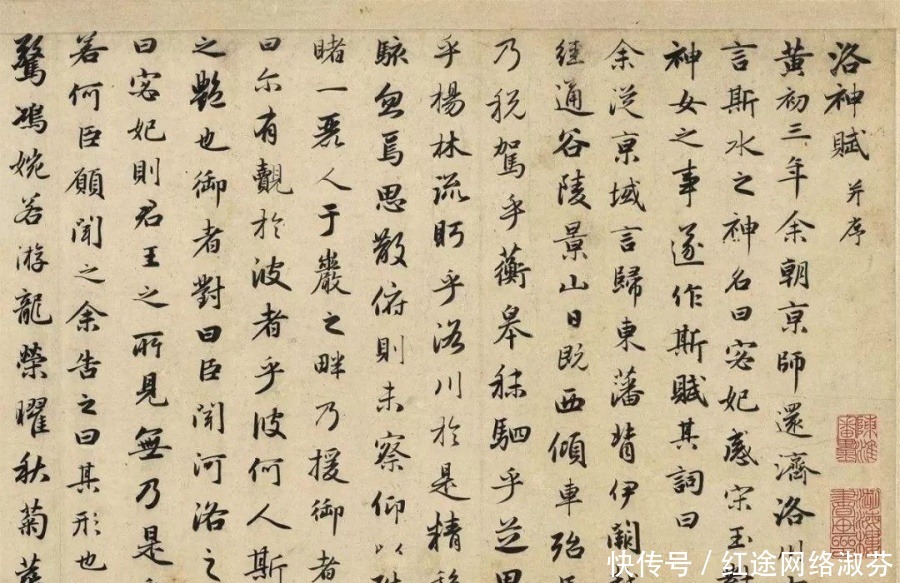 洛神賦 并序
黃初三年余朝京師還濟洛川
言斯水之神名曰宓妃感宋玉對
神女之事遂作斯賦其詞曰
余從京域言歸東藩背伊闕
經通谷陵景山日既西傾車殆
乃稅駕乎蘅皋秣駟乎芝田
乎楊林流眄乎洛川於是精移
駭忽焉思散俯則未察仰以殊
睹一麗人于巖之畔乃援御者
曰尔有覿於彼者乎彼何人斯
之艷也御者對曰臣聞河洛之
曰宓妃則君王之所見無乃是
若何臣願聞之余告之曰其形也
驚鴻婉若游龍榮曜秋菊華
快传号 / 红途网络淑芬